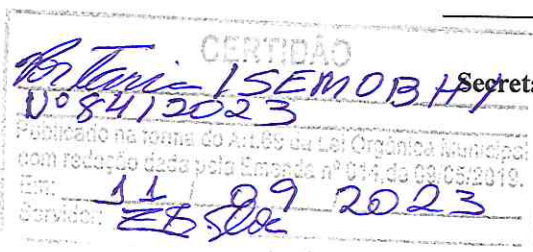 CERTIDÃO
Portaria / SEMOBH/
Nº 84/2023
Secreta
Publicado na forma do Art.99 da Lei Orgânica Municipal
com redação dada pela Emenda nº 014, de 09/05/2019.
Em: 11 / 09 / 2023
Servidor: